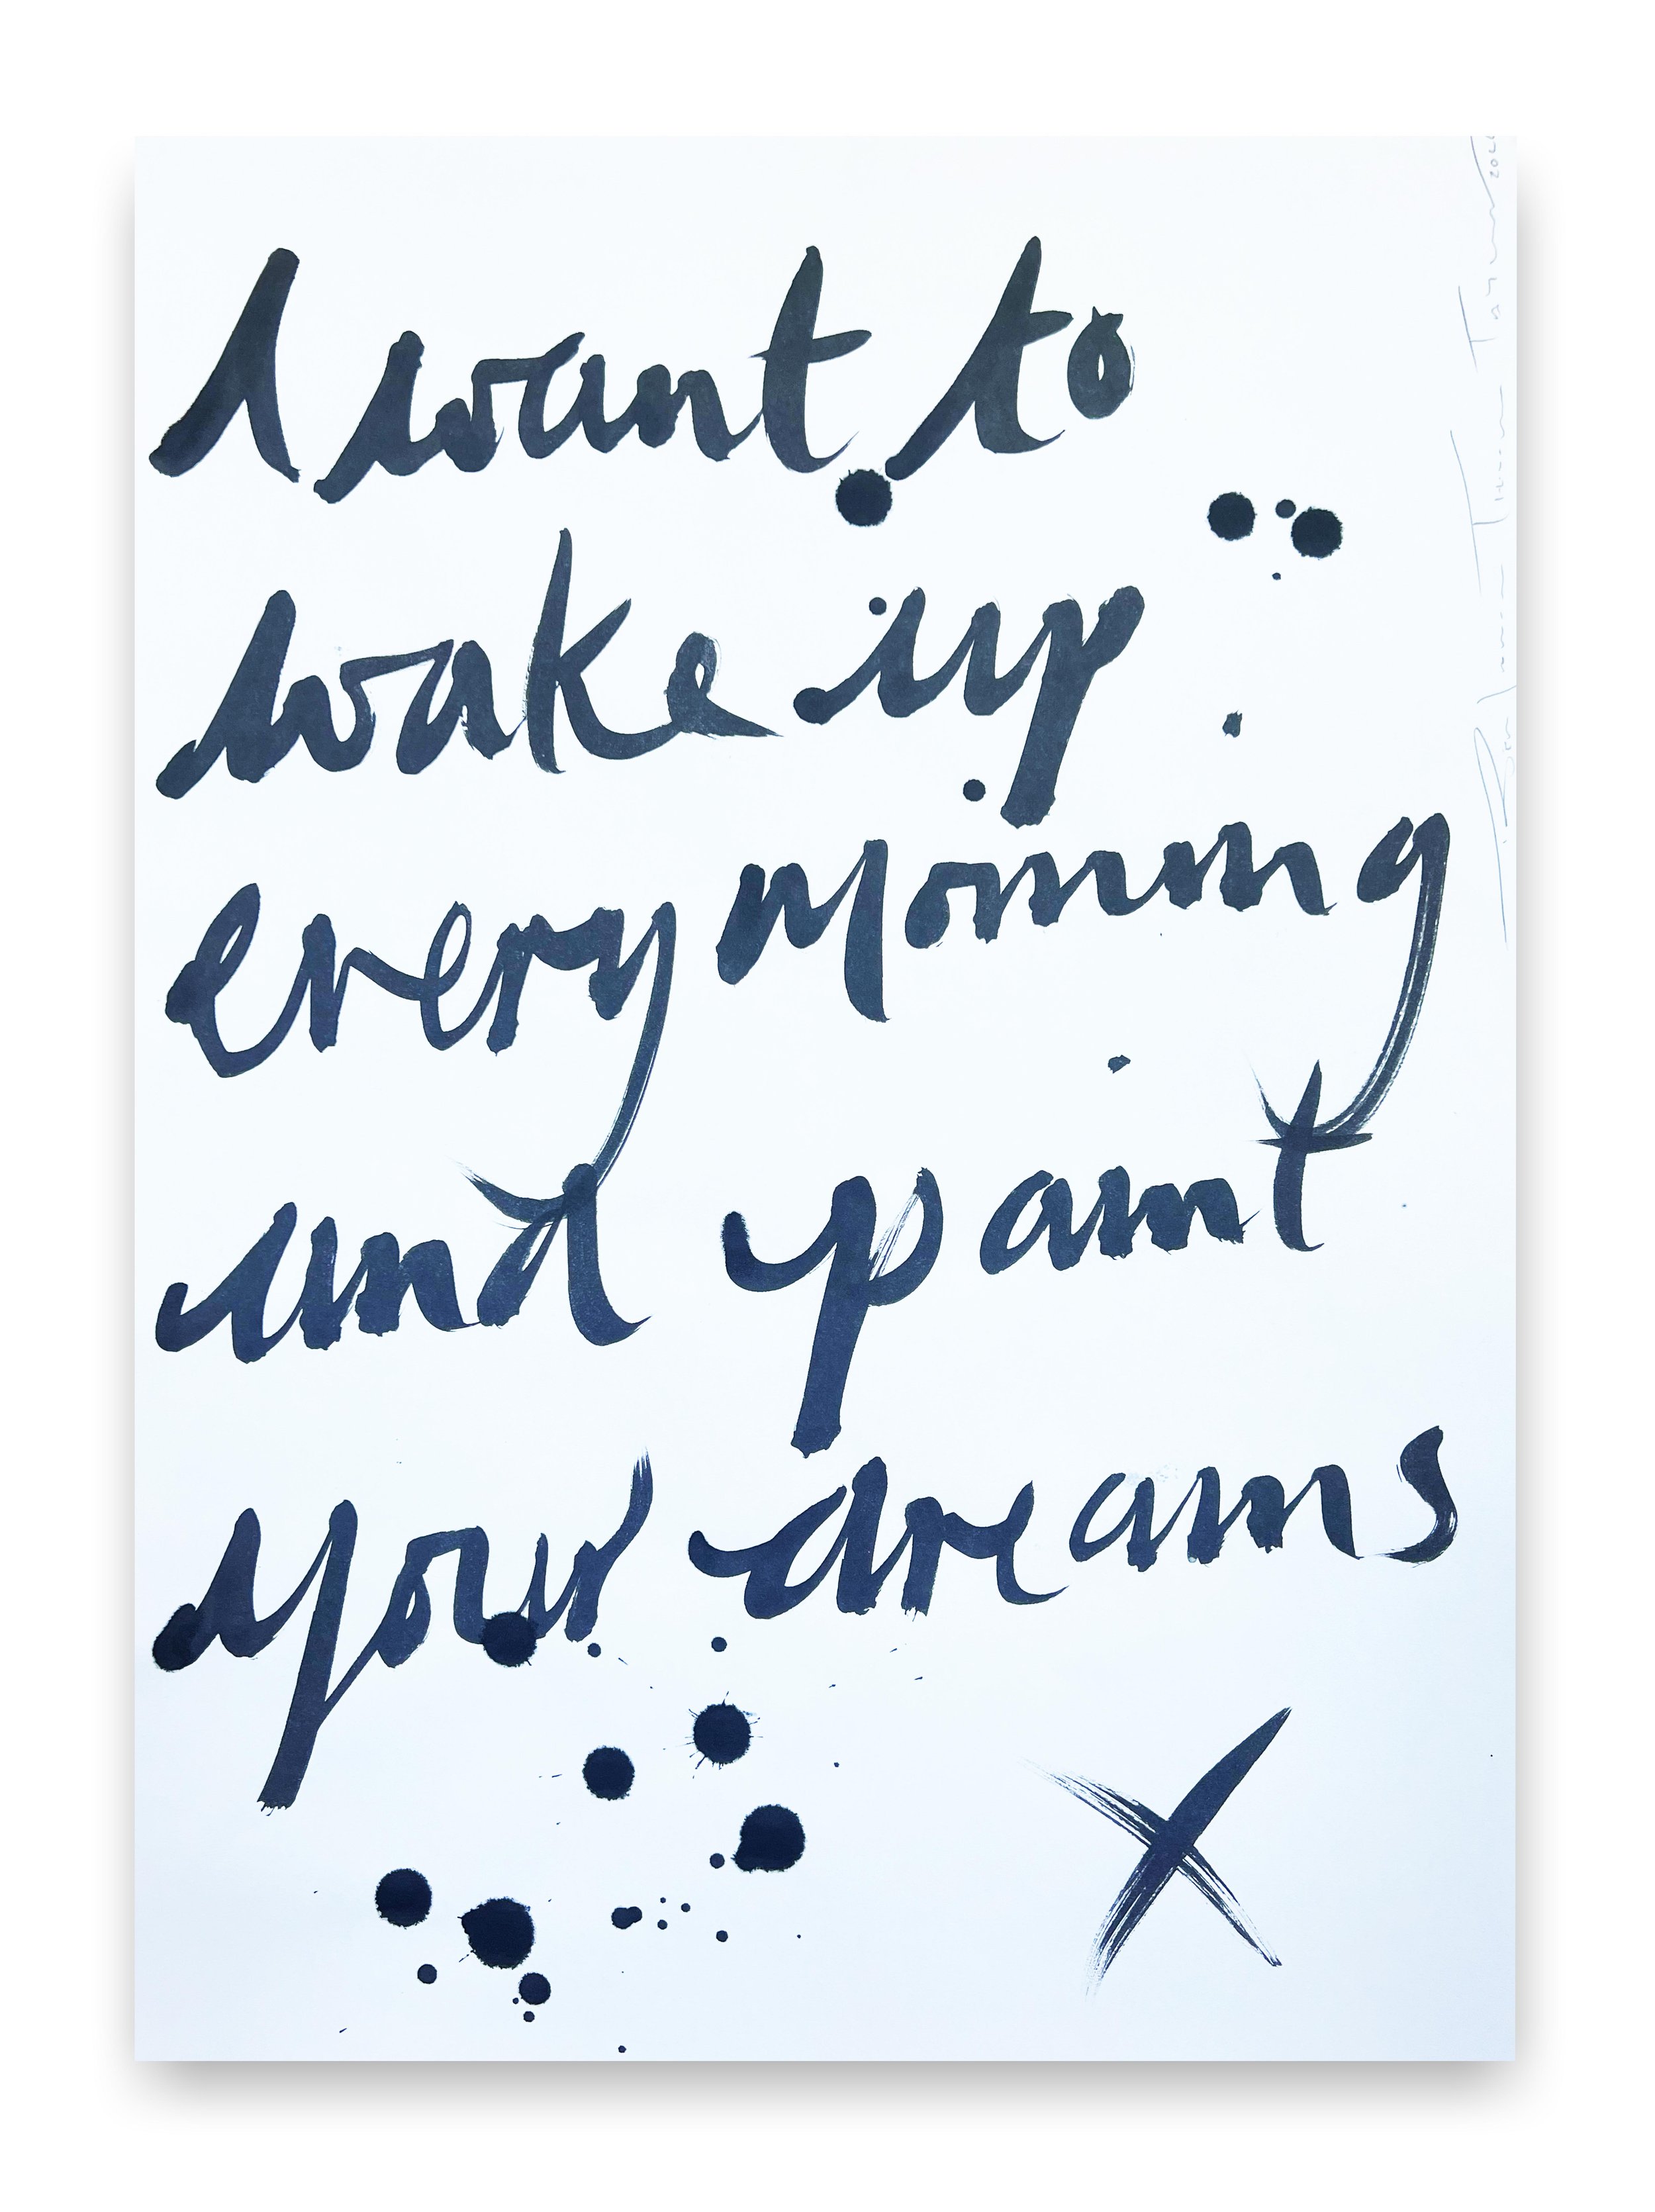 I want to
wake up
every morning
and paint
your dreams
X